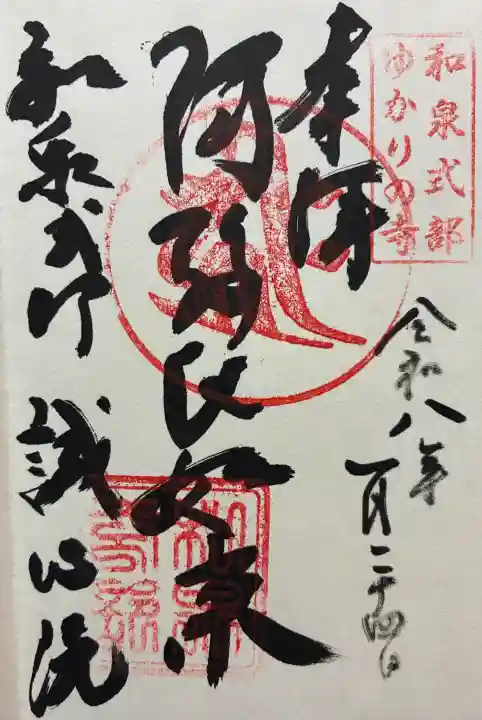 和泉式部
ゆかりの寺
奉拝
令和八年
一月二十四日
阿弥陀如来
和泉式部 誠心院